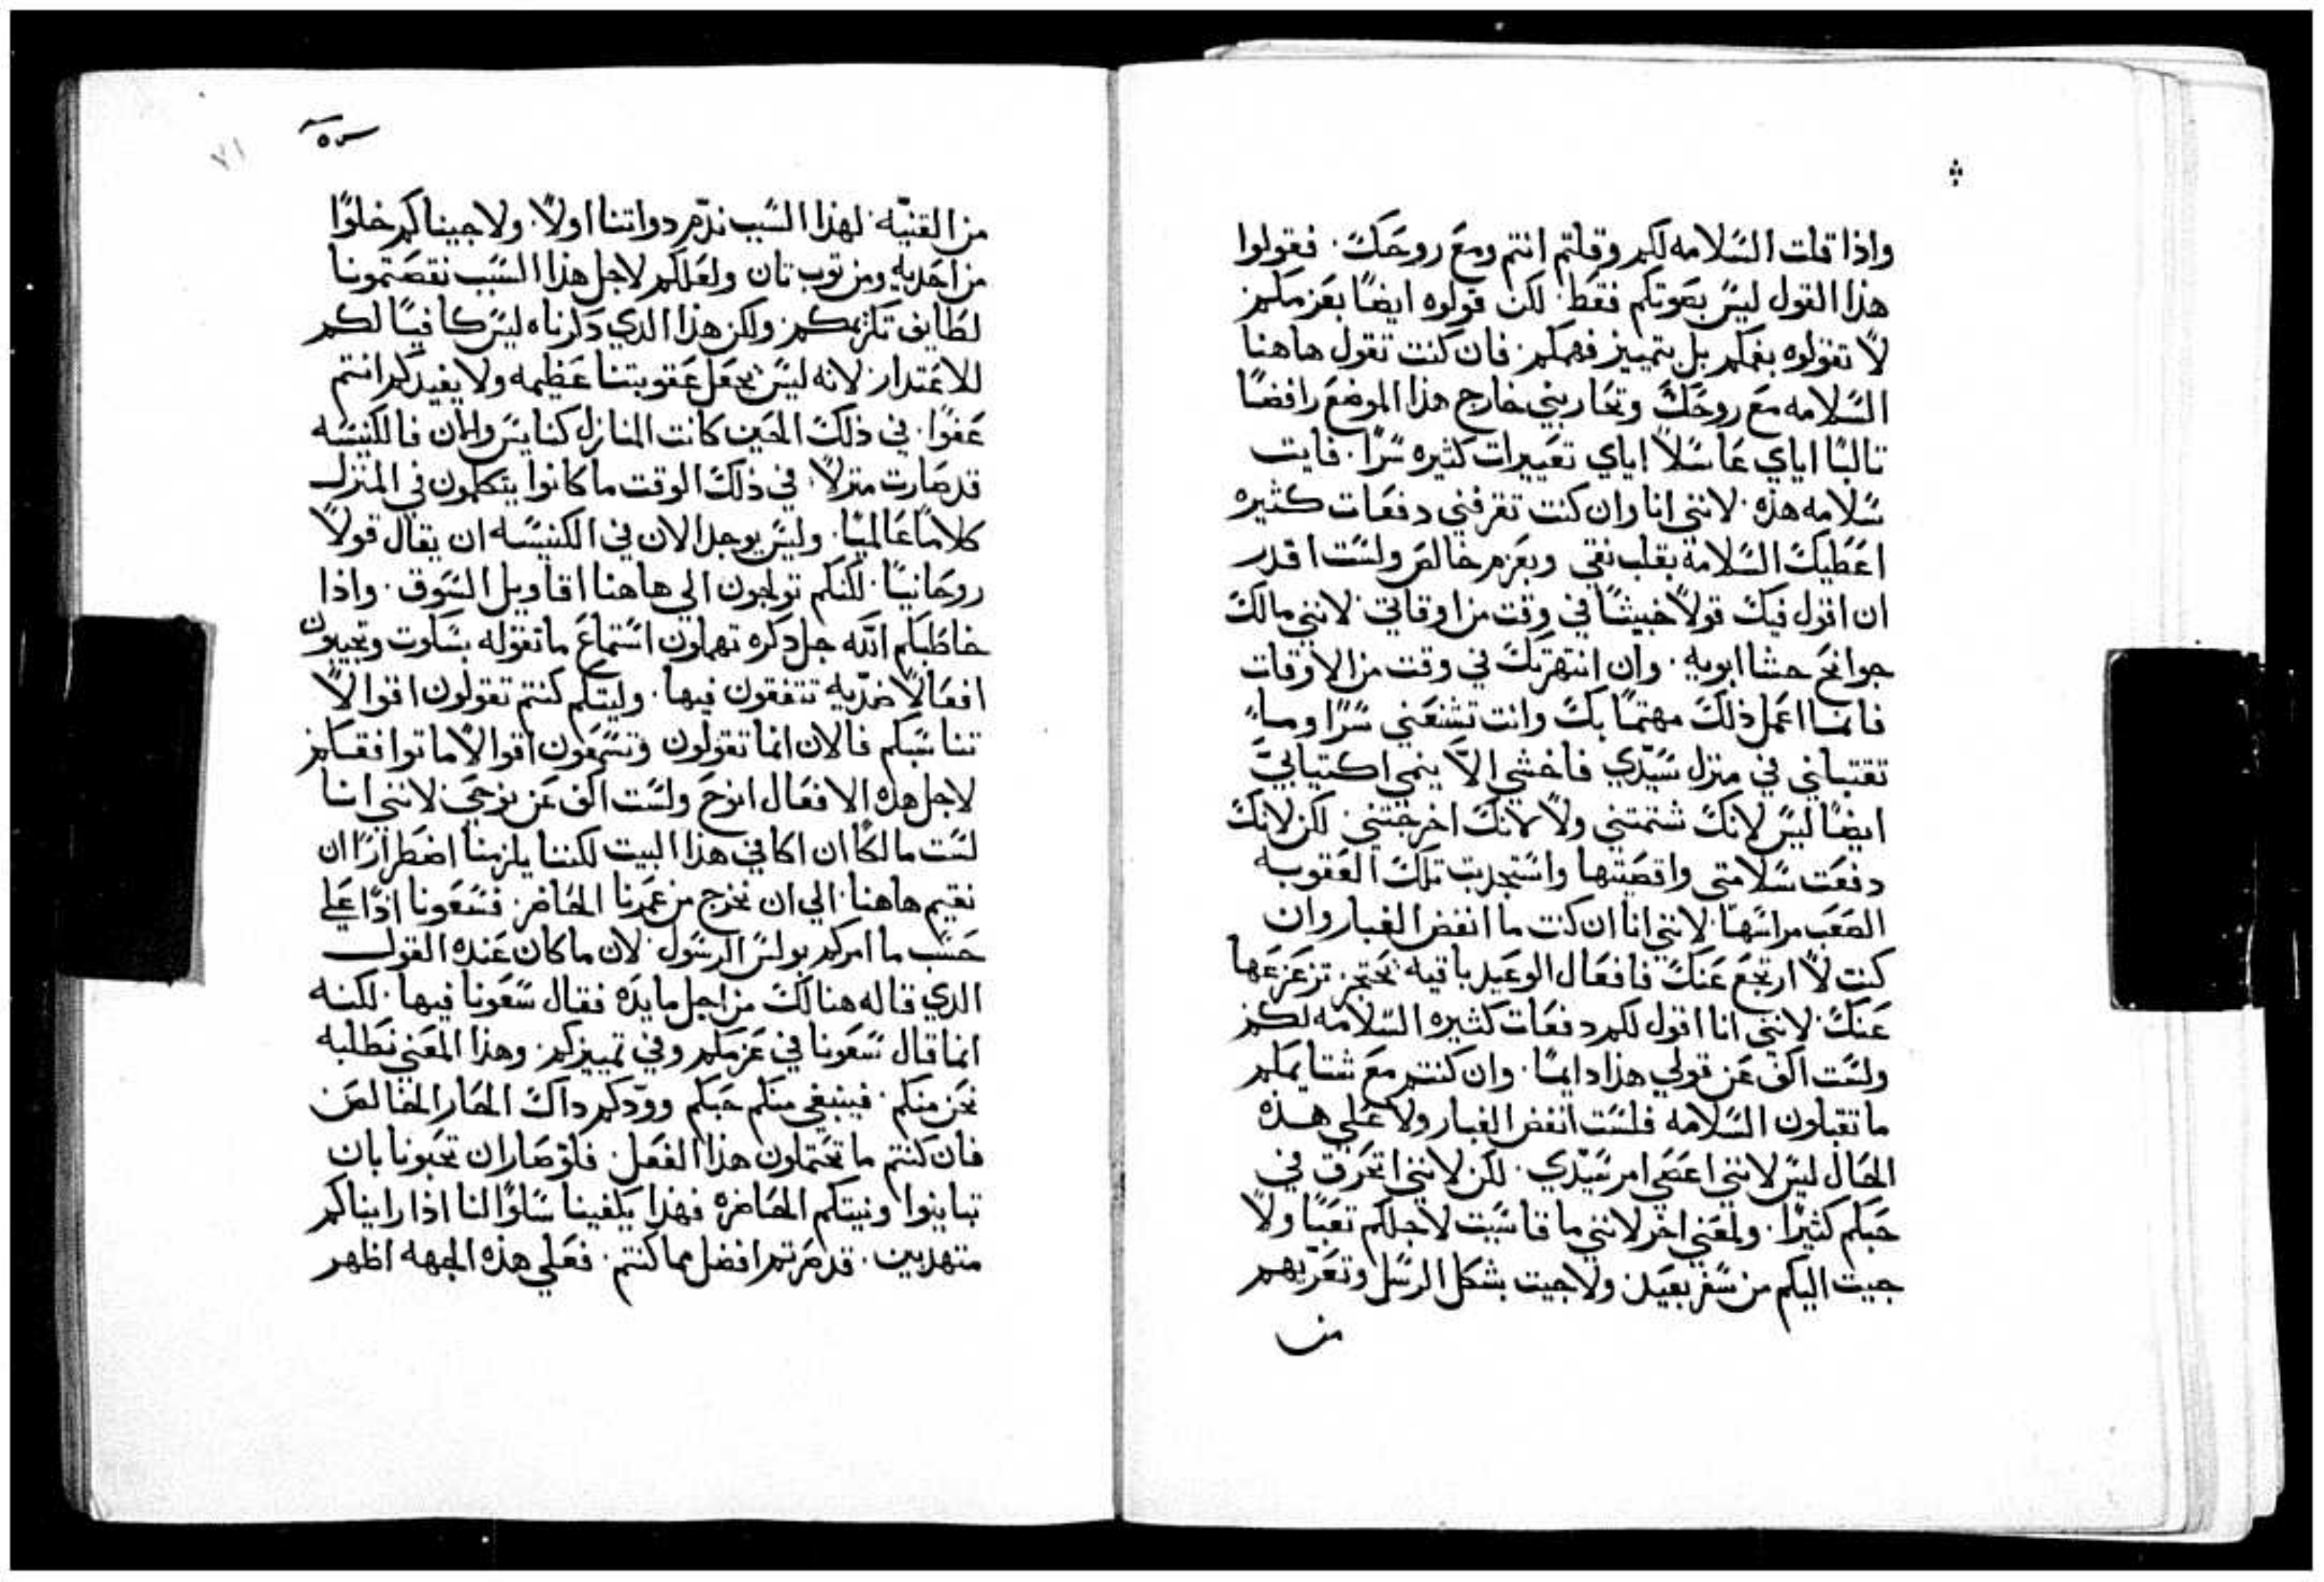 واذا قلت السلامه لكم وقلتم انتم ومع روحك. فقولوا
هذا القول ليس بصوتكم فقط. لكن قولوه ايضًا بعزمكم
لا تقولوه بفمكم بل بتمييز فهمكم. فان كنت تقول هاهنا
السلامه مع روحك وتحاربني خارج هذا الموضع رافضًا
تالبًا اياي غاسلاً اياي تعييرات كثيره سرًا. فايت
سلامه هذه. لانني انا وان كنت تقرفني دفعات كثيره
اعطيك السلامه بقلب نقي وبعزم خالص ولست اقدر
ان اقول فيك قولاً خبيثًا في وقت من اوقاتي. لانني مالك
جوانح حشا ابويه. وان انتهرتك في وقت من الاوقات
فانما اعمل ذلك مهتمًا بك وانت تشنعني سرًا وما
تقتبلني في منزل سيدي فاخشي الا ينمي اكتيابي
ايضًا ليس لانك شتمتني ولا لانك اخرجتني. لكن لانك
دفعت سلامتي واقصيتها واستجديت تلك العقوبه
الصعب مراسها. لانني انا ان كنت ما انفض الغبار وان
كنت لا ارتجع عنك فافعال الوعيد باقيه تزعزعها
عنك. لانني انا اقول لكم دفعات كثيره السلامه لكم
ولست اكف عن قولي هذا دايمًا. وان كنتم مع شتايمكم
ما تقبلون السلامه فلست انفض الغبار ولا علي هذه
الحال ليس لانني اعصي امر سيدي. لكن لانني اتحرق في
حبكم كثيرًا. ولمعني اخر لانني ما قاسيت لاجلكم تعبًا ولا
جيت اليكم من سفر بعيد ولا جيت بشكل الرسل وتعريهم
من
٧١
من القنيه. لهذا السبب نذم دواتنا اولاً. ولا جيناكم خلوًا
من احديه ومن توب تان ولعلكم لاجل هذا السبب نقصتمونا
لطايف تكرمكم ولكن هذا الدي دكرناه ليس كافيًا لكم
للاعتدار. لانه ليس يجعل عقوبتنا عظيمه ولا يفيدكم انتم
عفوًا. في ذلك الحين كانت المنازل كنايس والان فالكنيسه
قد صارت منزلاً. في ذلك الوقت ما كانوا يتكلمون في المنزل
كلامًا عالميًا. وليس يوجد الان في الكنيسه ان يقال قولاً
روحانيًا. لكنكم تولجون الي هاهنا اقاويل السوق. واذا
خاطبكم الله جل دكره تهملون استماع ما تقوله بسكوت وتجيبون
افعالاً ضديه تتفقون فيها. وليتكم كنتم تقولون اقوالاً
تناسبكم فالان انما تقولون وتسمعون اقوالاً ما توافقكم
لاجل هذه الافعال انوح ولست اكف عن نوحي. لانني انا
لست مالكًا ان اكافي هذا البيت لكننا يلزمنا اضطرارًا ان
نقيم هاهنا الي ان نخرج من عمرنا الحاضر. فسعونا اذًا علي
حسب ما امركم بولس الرسول. لان ما كان عنده القول
الدي قاله هنالك من اجل مايده فقال سعونا فيها. لكنه
انما قال سعونا في عزمكم وفي تمييزكم. وهذا المعني نطلبه
نحن منكم. فينبغي منكم حبكم وودكم داك الحار الخالص
فان كنتم ما تحتملون هذا الفعل. فلو صار ان تحبونا بان
تباينوا ونيتكم الحاضره فهذا يكفينا سلوًا لنا اذا رايناكم
متهدبين. قد صرتم افضل مما كنتم. فعلي هذه الجهه اظهر